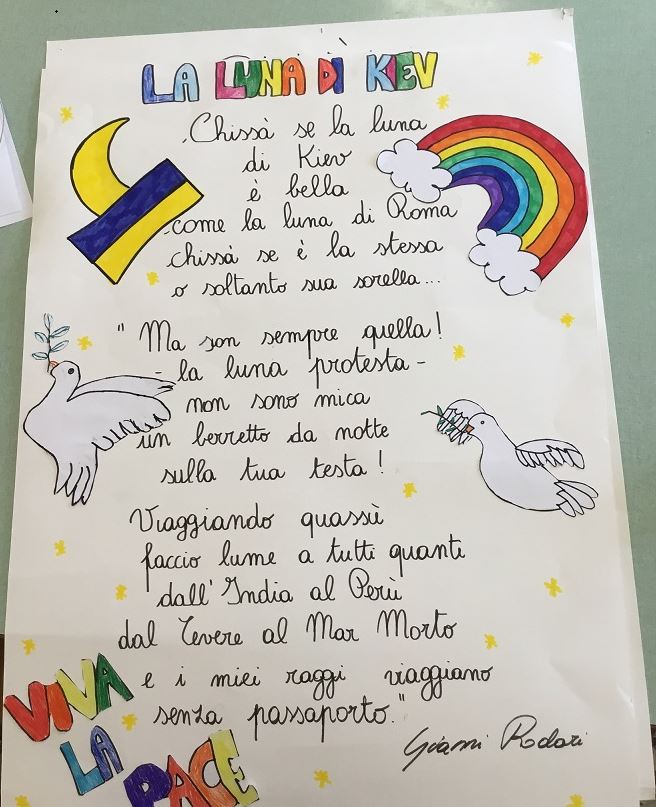 LA LUNA DI KEV
Chissà se la luna
di Kiev
è bella
come la luna di Roma
chissà se è la stessa
o soltanto sua sorella...
"Ma son sempre quella!
- la luna protesta -
non sono mica
un berretto da notte
sulla tua testa!
Viaggiando quassù
faccio lume a tutti quanti
dall'India al Perù
dal Tevere al Mar Morto
e i miei raggi viaggiano
senza passaporto."
Gianni Rodari
VIVA
LA
PACE